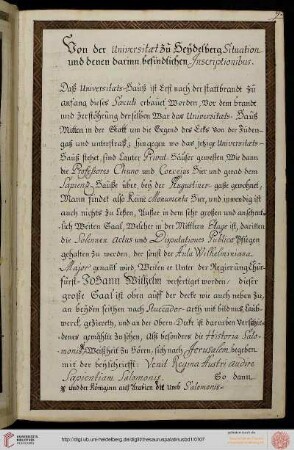 Von der Universitaet zu Heÿdelberg Situation
und denen darinn befindlichen Inscriptionibus.
Daß Universitats-Hauß ist Erst nach der stattbrandt zu
anfang dieses Sæculi erbauet worden, Vor dem brandt
und Zerstöhrung derselben War das Universitäts-Hauß
Mitten in der Statt um die Gegend des Ecks Von der Juden-
gaß und unterstraß, hingegen wo das jetzige Universitäts-
Hauß stehet, sind Lauter Privat-Häußer gewessen, Wie dann
die Professores Chuno und Coccejus hier und gerad dem
Sapienz-Hauße über, beÿ der Augustiner-gaße gewohnet,
Mann findet also Keine Monumenta hier, und inwendig ist
auch nichts zu Sehen, Außer in dem sehr großen und ansehnt-
lich Weiten Saal, Welcher in der Mittlern Etage ist, darinnen
die Solennen Actus und Disputationes Publicæ Pflegen
gehalten zu werden, der sonst der Aula Wilhelmiana
Major genant wird, Weilen er Unter der Regierung Chur-
fürst Johann Wilhelm verfertiget worden, dieser
große Saal ist oben auff der decke wie auch neben zu,
an beÿden seithen nach Stuccador-arth mit bildniß Laub-
werck, gezieret, und an der Obern-Decke ist darneben Verschie-
denes gemahlt zu sehen, Als besonders die Historia Salo-
monis Weißheit zu Hören, sich nach Jerusalem begeben
mit der beyschrifft: Venit Regina Austri audire
Sapientiam Salomonis. So dann
und der Königinn auß Arabien die Umb Salomonis
http://digi.ub.uni-heidelberg.de/diglit/thesauruspalatinusbd1/0107
UNIVERSITÄTS-
BIBLIOTHEK
HEIDELBERG